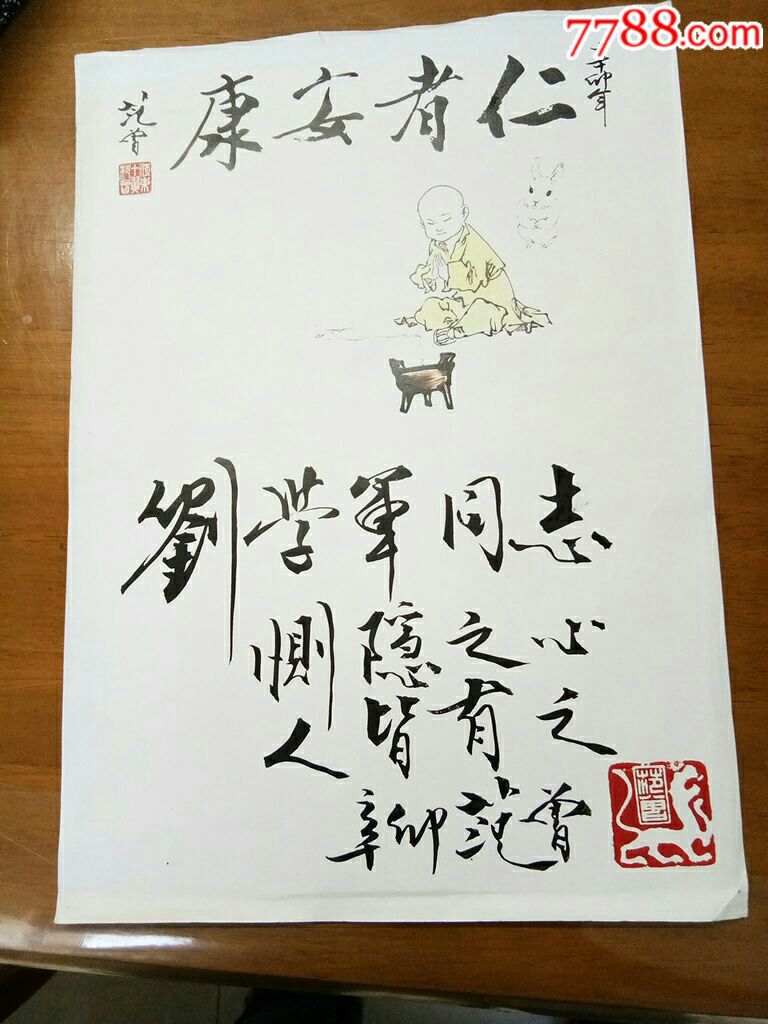 7788.com
辛卯年
仁者安康
范曾
劉学軍同志
惻隱之心
人皆有之
辛卯范曾
范曾